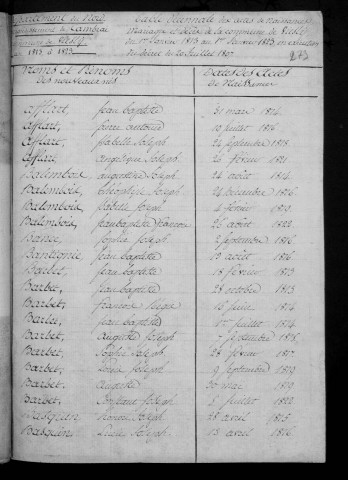 Département du Nord
arrondissement de Cambrai
Table Décennale des actes de Naissances,
Mariages et Décès de la commune de
du 1er Janvier 1813 au 1er Janvier 1823, en exécution
de 1813 à 1823
du décret du 20 Juillet 1807.
Noms et Prénoms
des nouveaux nés
Dates des Actes
de Naissances
affiart, Jean baptiste 31 mars 1814
affiart, pierre antoine 10 juillet 1816
affiart, Isabelle Joseph 24 septembre 1818
affiart, angelique Joseph 26 fevrier 1821
Balembois, augustine Joseph 24 août 1814
Balembois, theophile Joseph 24 decembre 1816
Balembois, Isabelle Joseph 4 fevrier 1819
Balembois, Jean baptiste francois 26 août 1822
Bance, Sophie Joseph 2 septembre 1816
Bantignie, Jean baptiste 19 août 1816
Barbet, Jean baptiste 18 fevrier 1813
Barbet, Jean baptiste 28 octobre 1813
Barbet, francois 15 juin 1814
Barbet, Jean baptiste juillet 1814
Barbet, Auguste Joseph 7 septembre 1815
Barbet, Sophie Joseph 28 fevrier 1817
Barbet, Joseph 9 septembre 1819
Barbet, Auguste 30 mai 1819
Barbet, Constant Joseph 8 juillet 1822
Basquin, Joseph 28 avril 1815
Basquin, Lucie Joseph 13 avril 1816